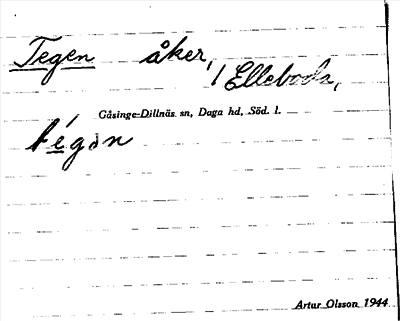 Tegen åker, / Elleboda,
Gåsinge-Dillnäs sn, Daga hd, Söd. l.
Artur Olsson 1944